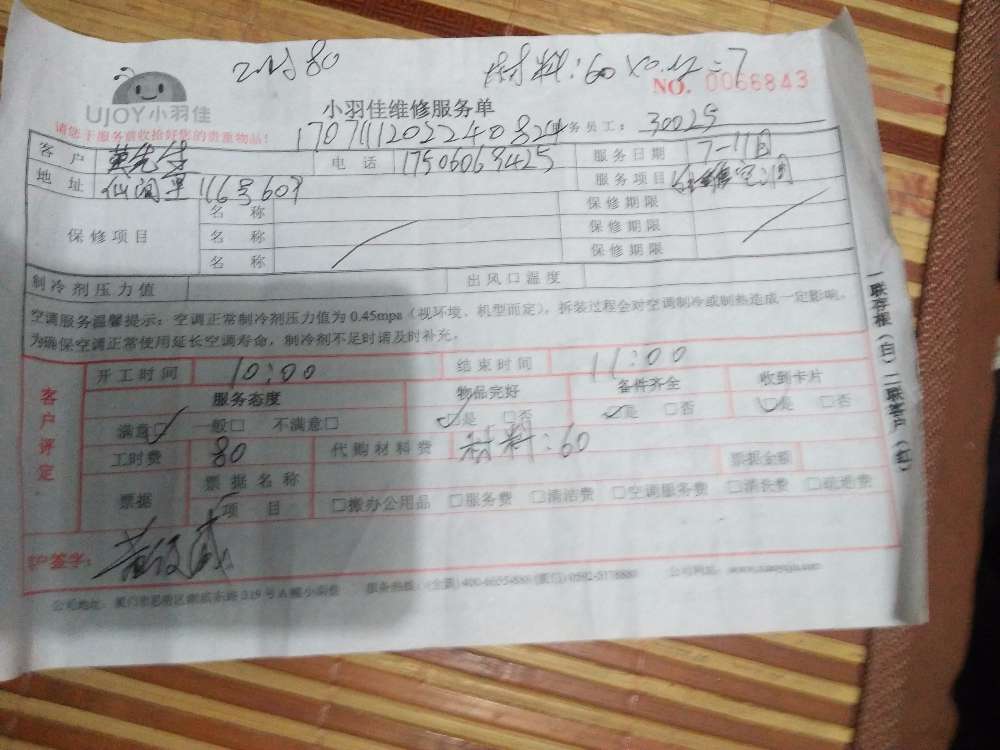 80
材料:60×0.12=7
NO. 0066843
UJOY小羽佳
小羽佳维修服务单
请您于服务前收拾好您的贵重物品!
务员工: 30025
客户 黄先生 电话 17506069425 服务日期 7-11日
地址 仙阁里116号607 服务项目 维空调
保修项目 名称 保修期限
名称 保修期限
名称 保修期限
制冷剂压力值 出风口温度
空调服务温馨提示:空调正常制冷剂压力值为 0.45mpa(视环境、机型而定),拆装过程会对空调制冷或制热造成一定影响。
为确保空调正常使用延长空调寿命,制冷剂不足时请及时补充。
客户评定
开工时间 10:00 结束时间 11:00
服务态度 物品完好 备件齐全 收到卡片
满意□ 一般□ 不满意□ □是 □否 □是 □否 □是 □否
工时费 80 代购材料费 材料:60
票据 票据名称 票据金额
项目 □搬办公用品 □服务费 □清洁费 □空调服务费 □清洗费 □疏通费
客户签字:
公司地址: 服务热线: 公司网址:
一联存根(白)二联客户(红)